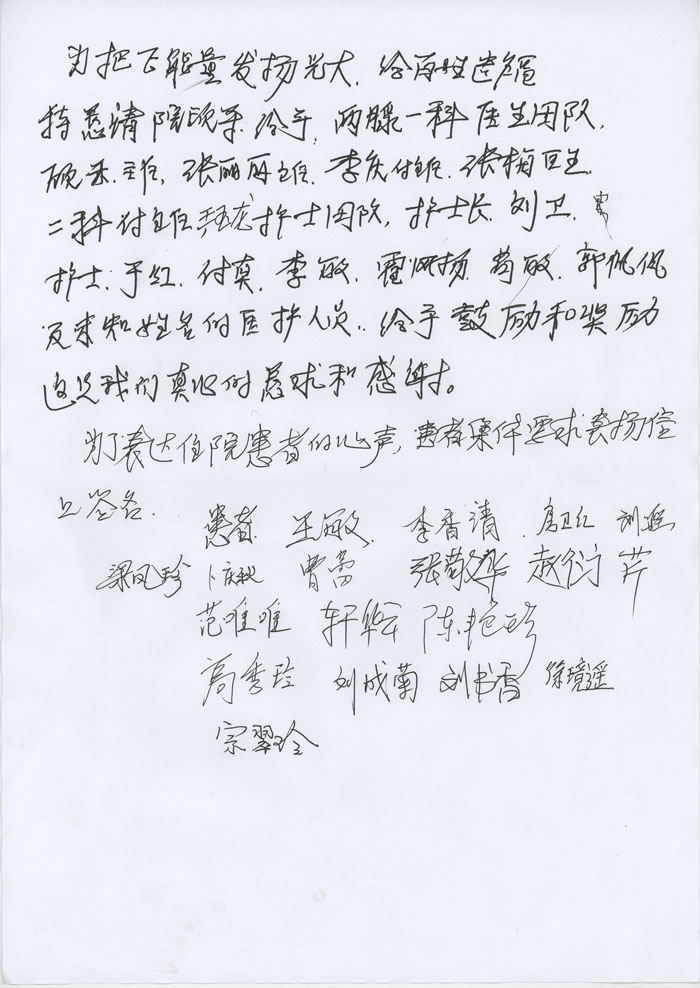 为把正能量发扬光大、给百姓造福
特恳请院领导给予，两腺一科医生团队，
硕 主任，张丽丽主任、李庆付主任、张梅医生
二科付主任 龙护士团队，护士长、刘卫、
护士、于红、付真、李敏、霍 扬、苟敏、郭佩佩
及未知姓名的医护人员、给予鼓励和奖励
这是我们真心的恳求和感谢。
为了表达住院患者的心声，患者集体要求表扬信
上签名.
患者. 王敏、李香清、唐卫红 刘
梁凤珍 卜庆秋 曹蕾 张敬华 赵衍芹
范唯唯 轩华云 陈艳珍
高秀玲 刘成菊 刘书香 徐境遥
宗翠玲